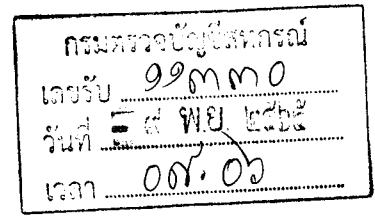 กรมตรวจบัญชีสหกรณ์
เลขรับ ๑๑๓๓๐
วันที่ ๘ พ.ย. ๒๕๖๕
เวลา